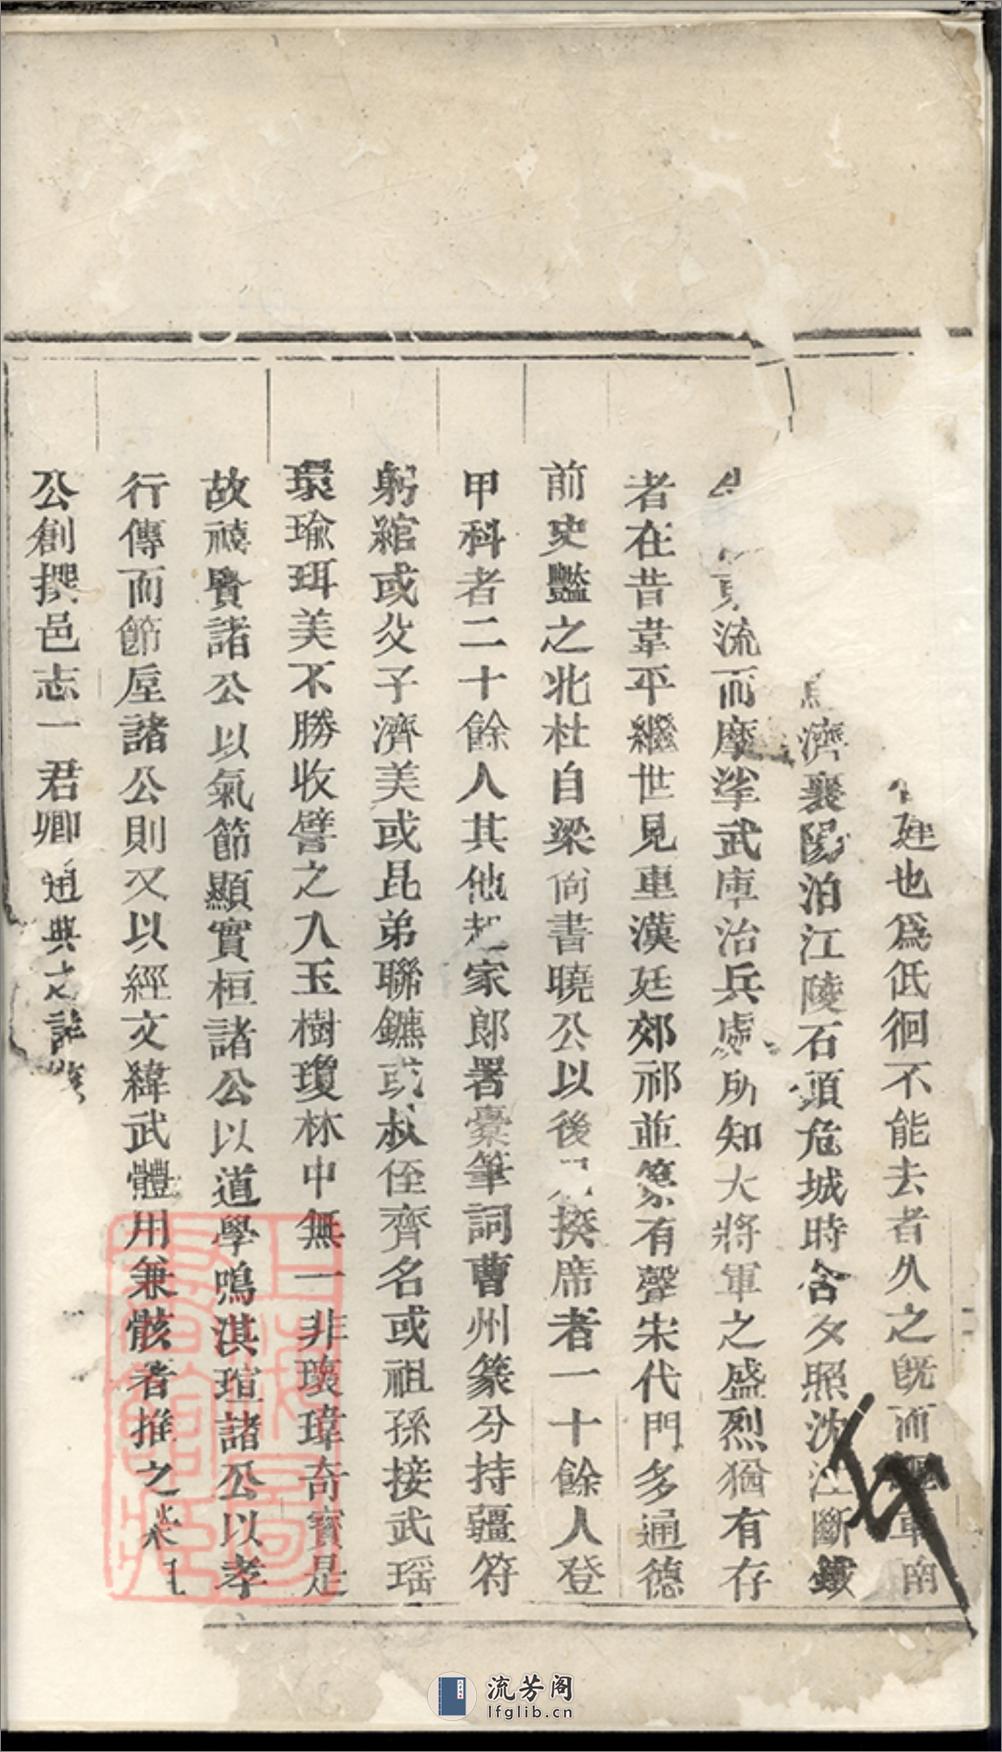 廷也爲低徊不能去者久之旣而車南
濟襄陽泊江陵石頭危城時含夕照沈江斷鐵
東流而摩挲武庫治兵處所知大將軍之盛烈猶有存
者在昔韋平繼世見重漢廷郊祁並篆有聲宋代門多通德
前史豔之北杜自梁尙書曉公以後揆席者一十餘人登
甲科者二十餘人其他起家郎署橐筆詞曹州篆分持疆符
躬綰或父子濟美或昆弟聯鑣或叔侄齊名或祖孫接武瑤
環瑜珥美不勝收譬之入玉樹瓊林中無一非瓌瑋奇寳是
故禧賢諸公以氣節顯實桓諸公以道學鳴淇瑄諸公以孝
行傳而節垕諸公則又以經文緯武體用兼骸者推之
公創撰邑志一君卿通典之
上海圖書館藏
流芳阁
lfglib.cn